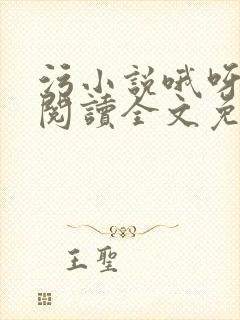 污小說哦呀
閱讀全文免
王聖